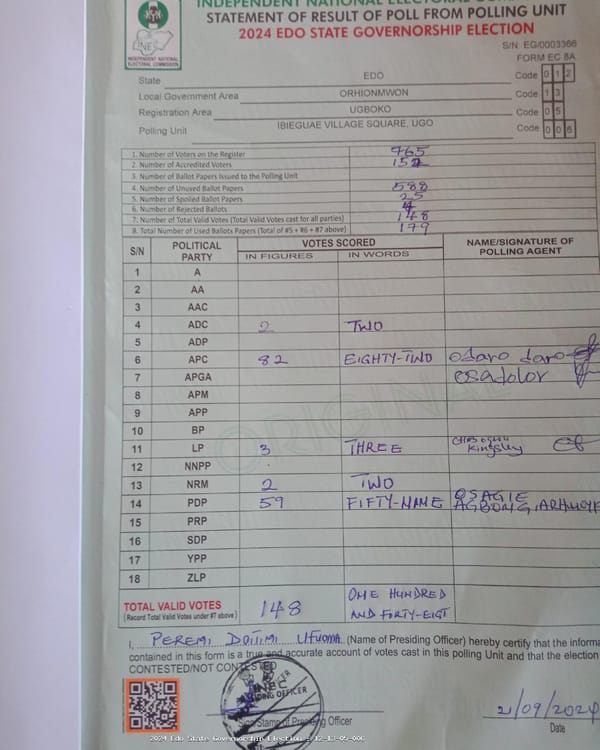 INDEPENDENT NATIONAL ELECTORAL
STATEMENT OF RESULT OF POLL FROM POLLING UNIT
2024 EDO STATE GOVERNORSHIP ELECTION
INEC
INDEPENDENT NATIONAL
ELECTORAL COMMISSION
S/N: EG/0003366
FORM EC 8A
State EDO Code 0 1 2
Local Government Area ORHIONMWON Code 1 3
Registration Area UGBOKO Code 0 5
Polling Unit IBIEGUAE VILLAGE SQUARE, UGO Code 0 0 6
1. Number of Voters on the Register 765
2. Number of Accredited Voters
3. Number of Ballot Papers Issued to the Polling Unit
4. Number of Unused Ballot Papers 588
5. Number of Spoiled Ballot Papers 25
6. Number of Rejected Ballots
7. Number of Total Valid Votes (Total Valid Votes cast for all parties) 148
8. Total Number of Used Ballots Papers (Total of #5 + #6 + #7 above) 179
S/N POLITICAL PARTY VOTES SCORED NAME/SIGNATURE OF POLLING AGENT
IN FIGURES IN WORDS
1 A
2 AA
3 AAC
4 ADC 2 TWO
5 ADP
6 APC 82 EIGHTY-TWO osaro
7 APGA osadolor
8 APM
9 APP
10 BP
11 LP 3 THREE Kingsley
12 NNPP
13 NRM 2 TWO OSAGIE
14 PDP 59 FIFTY-NAME
15 PRP
16 SDP
17 YPP
18 ZLP
ORIGINAL
TOTAL VALID VOTES 148 ONE HUNDRED
(Record Total Valid Votes under #7 above) AND FORTY-EIGT
I, PEREMI Ufuoma (Name of Presiding Officer) hereby certify that the informa
contained in this form is a true and accurate account of votes cast in this polling Unit and that the election
CONTESTED/NOT CONTESTED
INEC
PRESIDING OFFICER
Sign/Stamp of Presiding Officer
21/09/2024
Date
2024 Edo State Governorship Election - 12-13-05-006